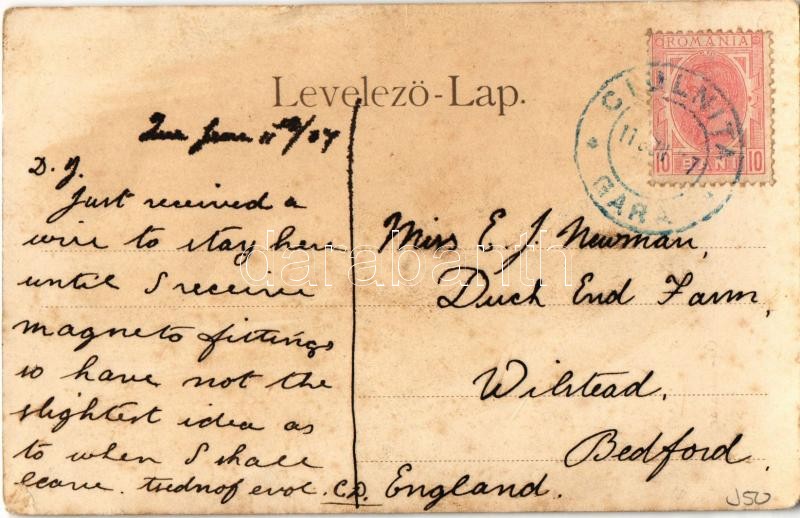 Levelezö-Lap.
ROMANIA
10 BANI 10
CIULNITA
11 JUN 7
* GARA *
Tue June 11th/07
D. J.
Just received a
wire to stay here
until I receive
magneto fittings
so have not the
slightest idea as
to when I shall
leave. tsednof evol. C.D.
Miss E. J. Newman,
Duck End Farm,
Wilstead,
Bedford,
England.
darabanth
J50